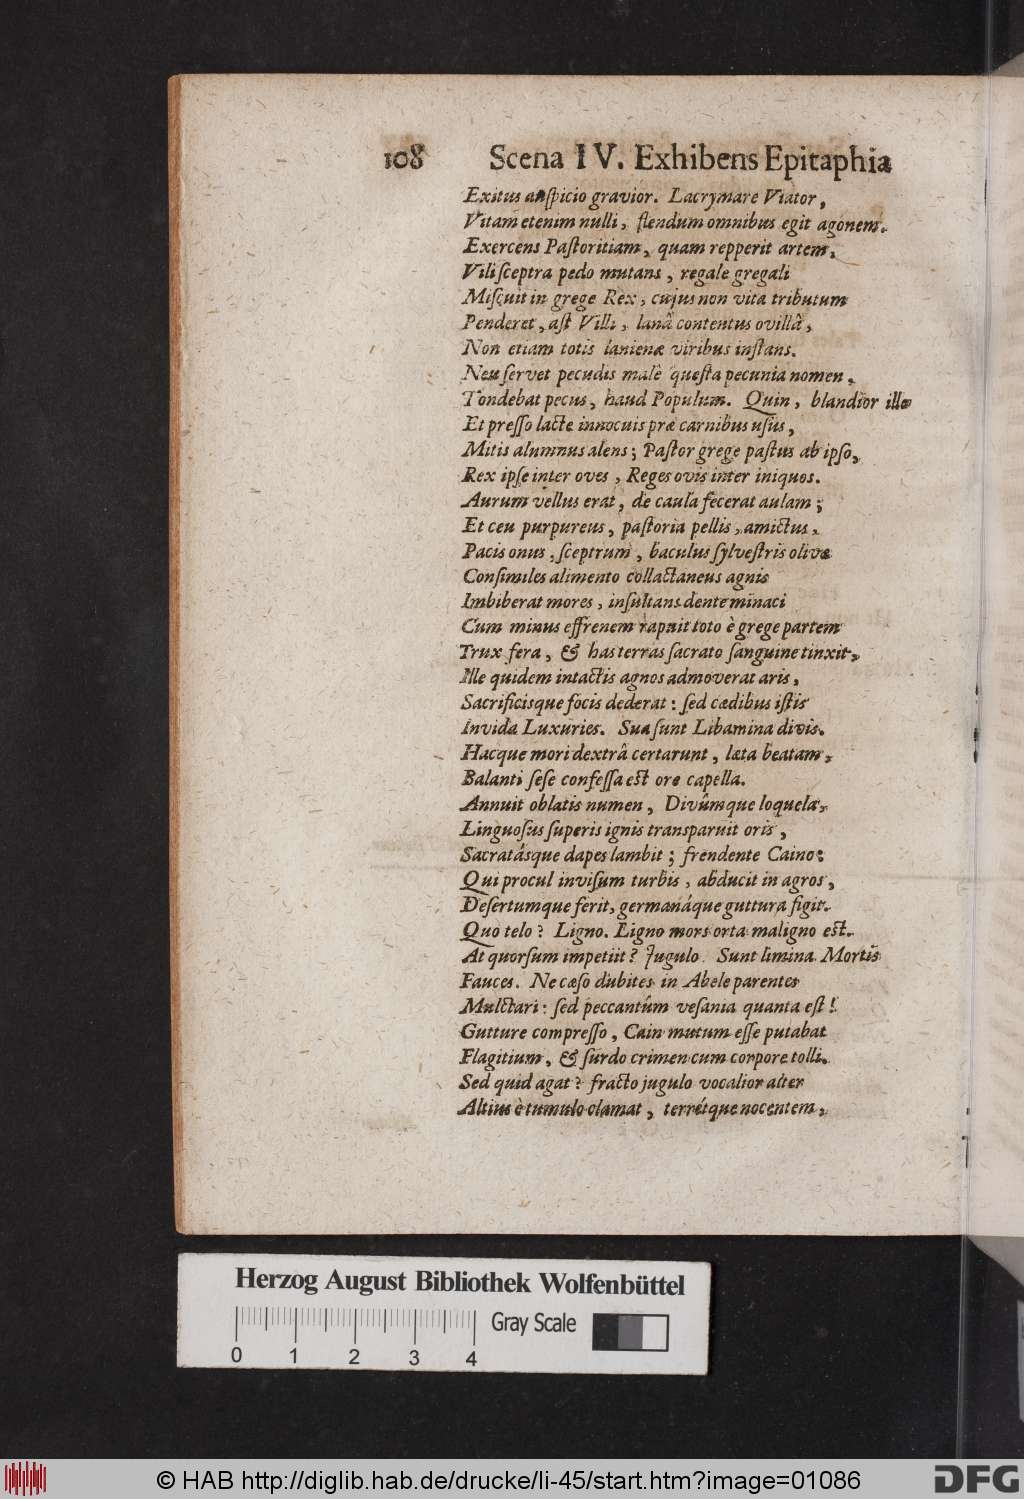 108 Scena IV. Exhibens Epitaphia
Exitus auſpicio gravior. Lacrymare Viator,
Vitam etenim nulli, flendum omnibus egit agonem.
Exercens Paſtoritiam, quam repperit artem,
Vili ſceptra pedo mutans, regale gregali
Miſcuit in grege Rex, cujus non vita tributum
Penderet, aſt Villi, lanâ contentus ovillâ,
Non etiam totis lanienæ viribus inſtans.
Neu ſervet pecudis malè queſta pecunia nomen,
Tondebat pecus, haud Populum. Quin, blandior ille
Et preſſo lacte innocuis præ carnibus uſus,
Mitis alumnus alens; Paſtor grege paſtus ab ipſo,
Rex ipſe inter oves, Reges ovis inter iniquos.
Aurum vellus erat, de caula fecerat aulam;
Et ceu purpureus, paſtoria pellis, amictus,
Pacis onus, ſceptrum, baculus ſylveſtris olivæ
Conſimiles alimento collactaneus agnis
Imbiberat mores, inſultans dente minaci
Cum minus effrenem rapuit toto è grege partem
Trux fera, & has terras ſacrato ſanguine tinxit,
Ille quidem intactis agnos admoverat aris,
Sacrificisque focis dederat: ſed cædibus iſtis
Invida Luxuries. Sua ſunt Libamina divis.
Hacque mori dextrâ certarunt, læta beatam,
Balanti ſeſe confeſſa eſt ore capella.
Annuit oblatis numen, Divûmque loquela,
Linguoſus ſuperis ignis transparuit oris,
Sacratásque dapes lambit; frendente Caino:
Qui procul inviſum turbis, abducit in agros,
Deſertumque ferit, germanáque guttura figit.
Quo telo? Ligno. Ligno mors orta maligno eſt.
At quorſum impetiit? Jugulo. Sunt limina Mortis
Fauces. Ne cæſo dubites in Abele parentes
Mulctari: ſed peccantûm veſania quanta eſt!
Gutture compreſſo, Cain mutum eſſe putabat
Flagitium, & ſurdo crimen cum corpore tolli.
Sed quid agat? fracto jugulo vocalior alter
Altius è tumulo clamat, terrétque nocentem,
Herzog August Bibliothek Wolfenbüttel
0 1 2 3 4 Gray Scale
© HAB http://diglib.hab.de/drucke/li-45/start.htm?image=01086
DFG